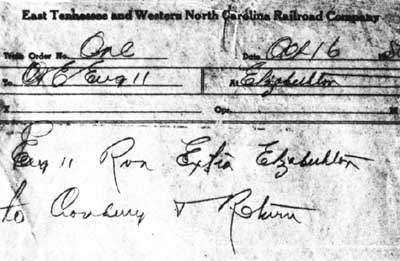 East Tennessee and Western North Carolina Railroad Company
Train Order No. One Date Oct 16
To C&E Eng 11 At Elizabethton
X Opr. M
Eng 11 Run Extra Elizabethton
to Cranberry & Return